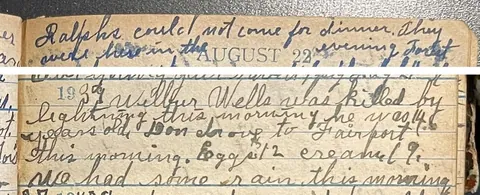 Ralphs could not come for dinner. They
were here in the evening
AUGUST 22
1939 Wilbur Wells was killed by
lightning this morning he was 16
years old. Don drove to Fairport
this morning. Eggs 12 cream
we had some rain this morning